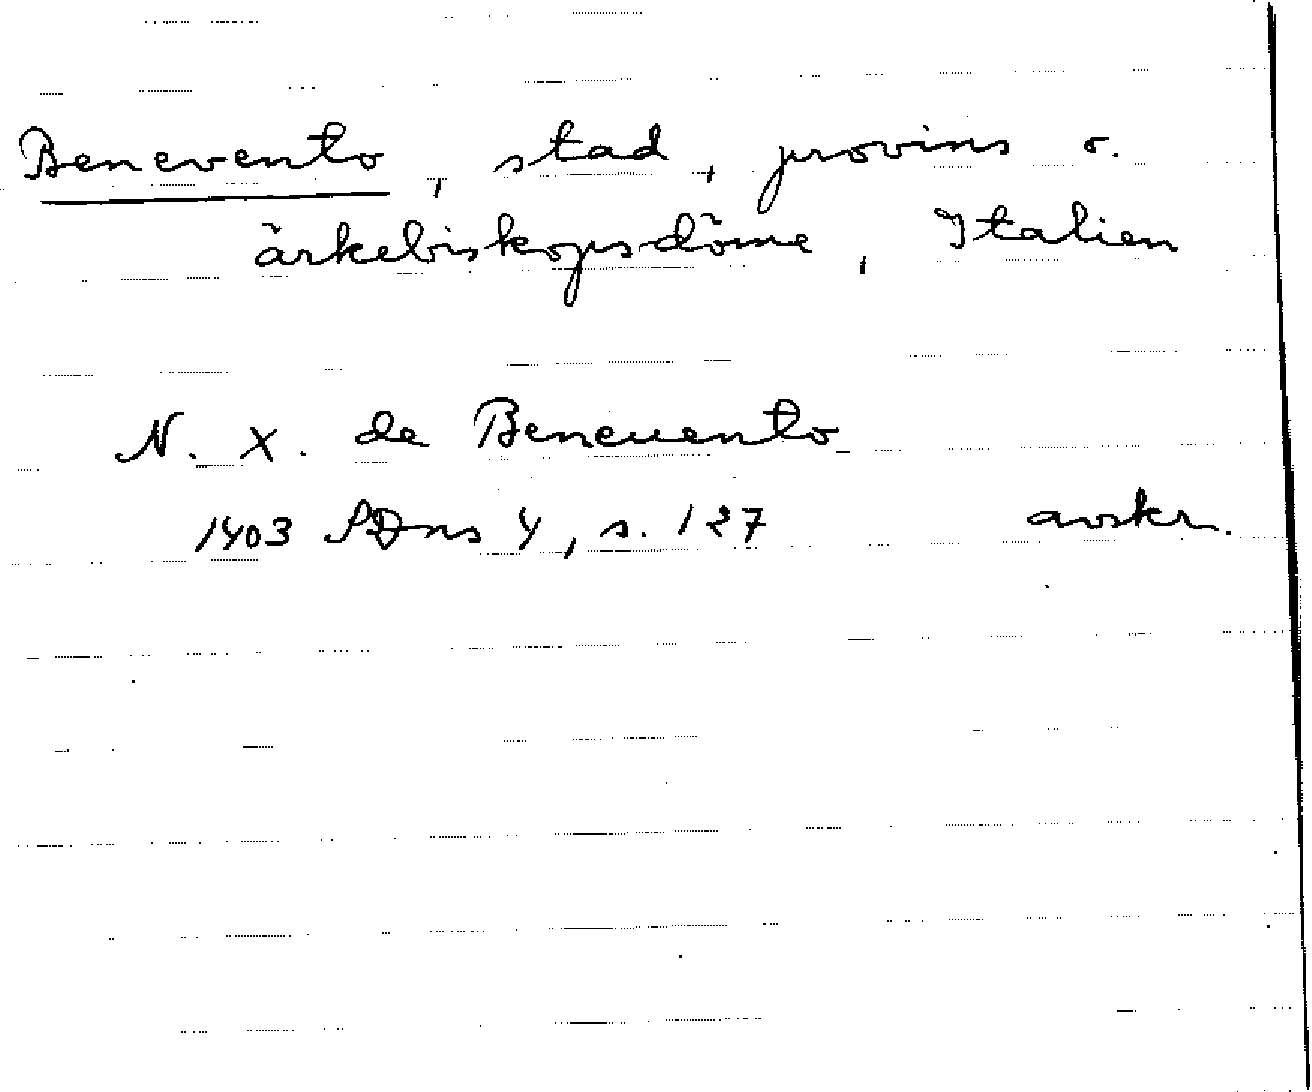 Benevento, stad, provins o.
ärkebiskopsdöme, Italien
N. X. de Beneuento
1403 SDns 4, s. 127 avskr.